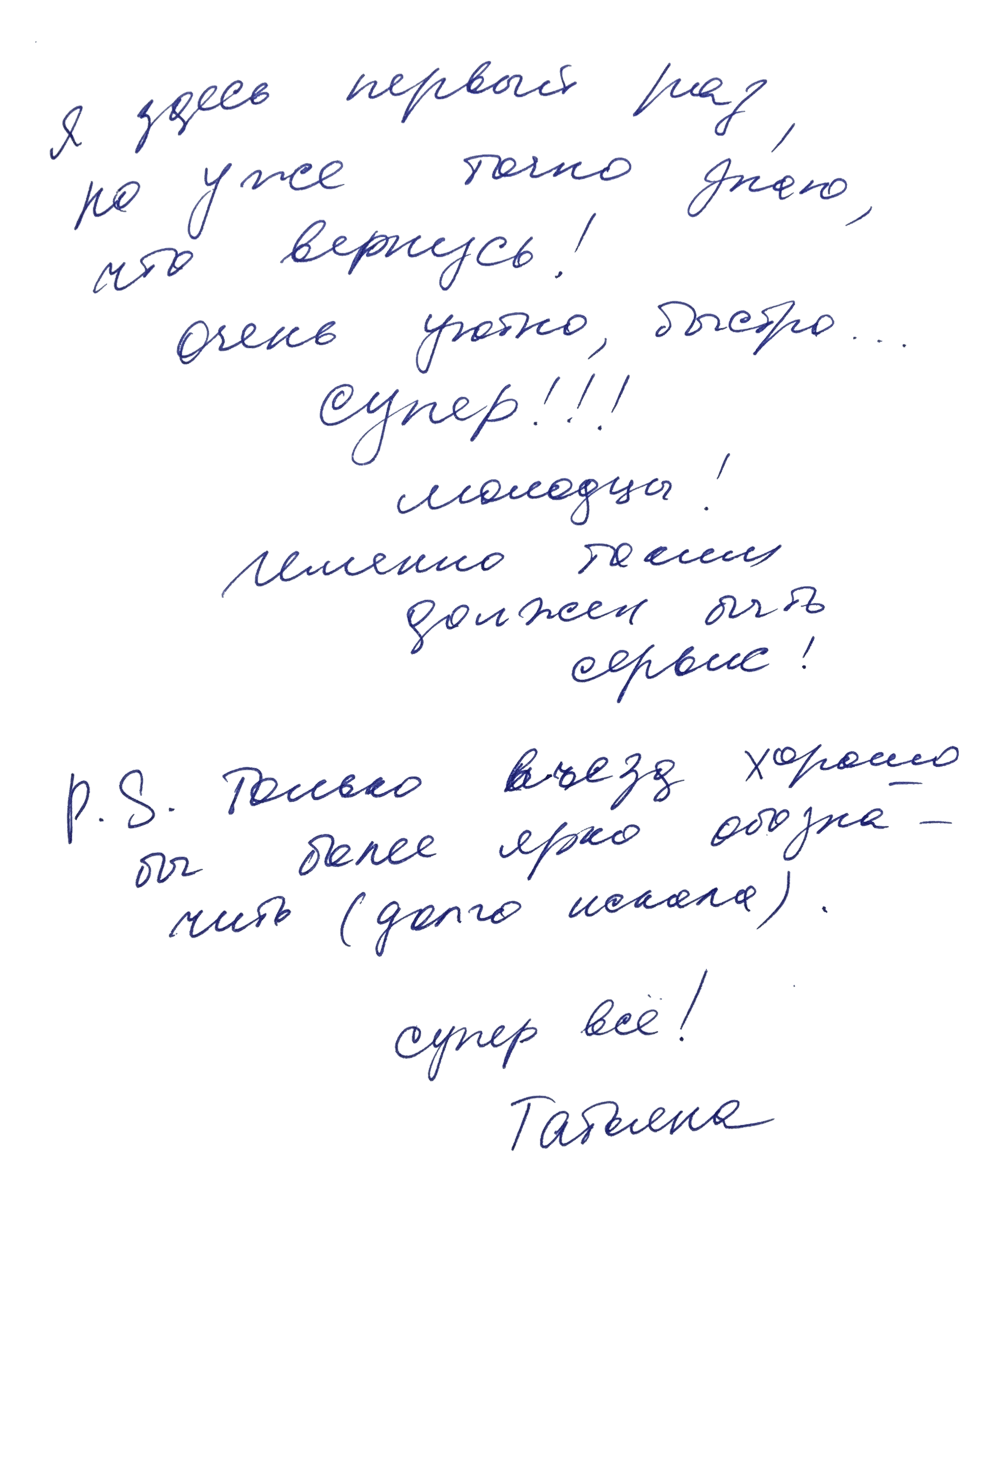 Я здесь первый раз,
но уже точно знаю,
что вернусь!
очень уютно, быстро...
супер!!!
молодцы!
Именно таким
должен быть
сервис!
P.S. Только въезд хорошо
бы более ярко обозна-
чить (долго искала).
супер всё!
Татьяна